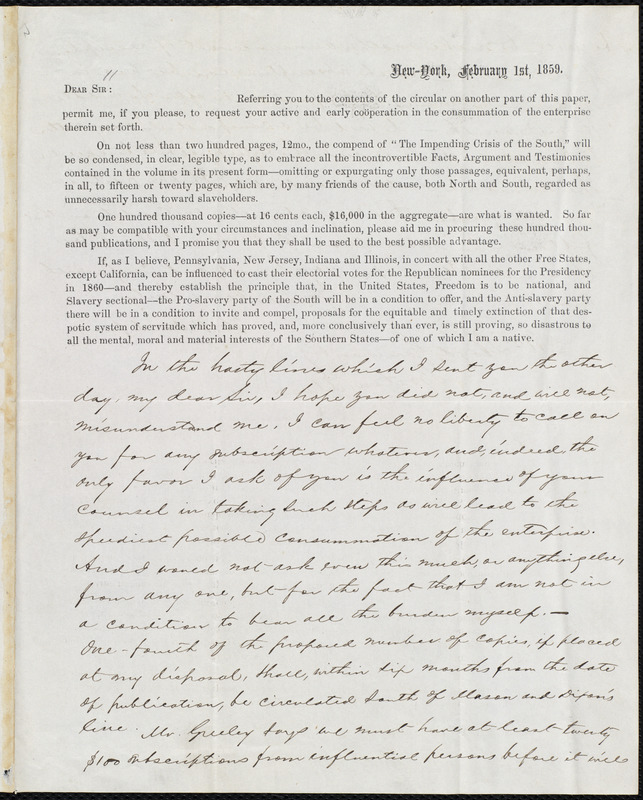 New-York, February 1st, 1859.
11
DEAR SIR:
Referring you to the contents of the circular on another part of this paper,
permit me, if you please, to request your active and early coöperation in the consummation of the enterprise
therein set forth.
On not less than two hundred pages, 12mo., the compend of "The Impending Crisis of the South," will
be so condensed, in clear, legible type, as to embrace all the incontrovertible Facts, Argument and Testimonies
contained in the volume in its present form—omitting or expurgating only those passages, equivalent, perhaps,
in all, to fifteen or twenty pages, which are, by many friends of the cause, both North and South, regarded as
unnecessarily harsh toward slaveholders.
One hundred thousand copies—at 16 cents each, $16,000 in the aggregate—are what is wanted. So far
as may be compatible with your circumstances and inclination, please aid me in procuring these hundred thou-
sand publications, and I promise you that they shall be used to the best possible advantage.
If, as I believe, Pennsylvania, New Jersey, Indiana and Illinois, in concert with all the other Free States,
except California, can be influenced to cast their electorial votes for the Republican nominees for the Presidency
in 1860—and thereby establish the principle that, in the United States, Freedom is to be national, and
Slavery sectional—the Pro-slavery party of the South will be in a condition to offer, and the Anti-slavery party
there will be in a condition to invite and compel, proposals for the equitable and timely extinction of that des-
potic system of servitude which has proved, and, more conclusively than ever, is still proving, so disastrous to
all the mental, moral and material interests of the Southern States—of one of which I am a native.
In the hasty lines which I sent you the other
day, my dear Sir, I hope you did not, and will not,
misunderstand me. I can feel no liberty to call on
you for any subscription whatever, and, indeed, the
only favor I ask of you is the influence of your
counsel in taking such steps as will lead to the
speediest possible consummation of the enterprise.
And I would not ask even this much, or anything else,
from any one, but for the fact that I am not in
a condition to bear all the burden myself.—
One-fourth of the proposed number of copies, if placed
at my disposal, shall, within six months from the date
of publication, be circulated South of Mason and Dixon's
line. Mr. Greeley says we must have at least twenty
$100 subscriptions from influential persons before it will